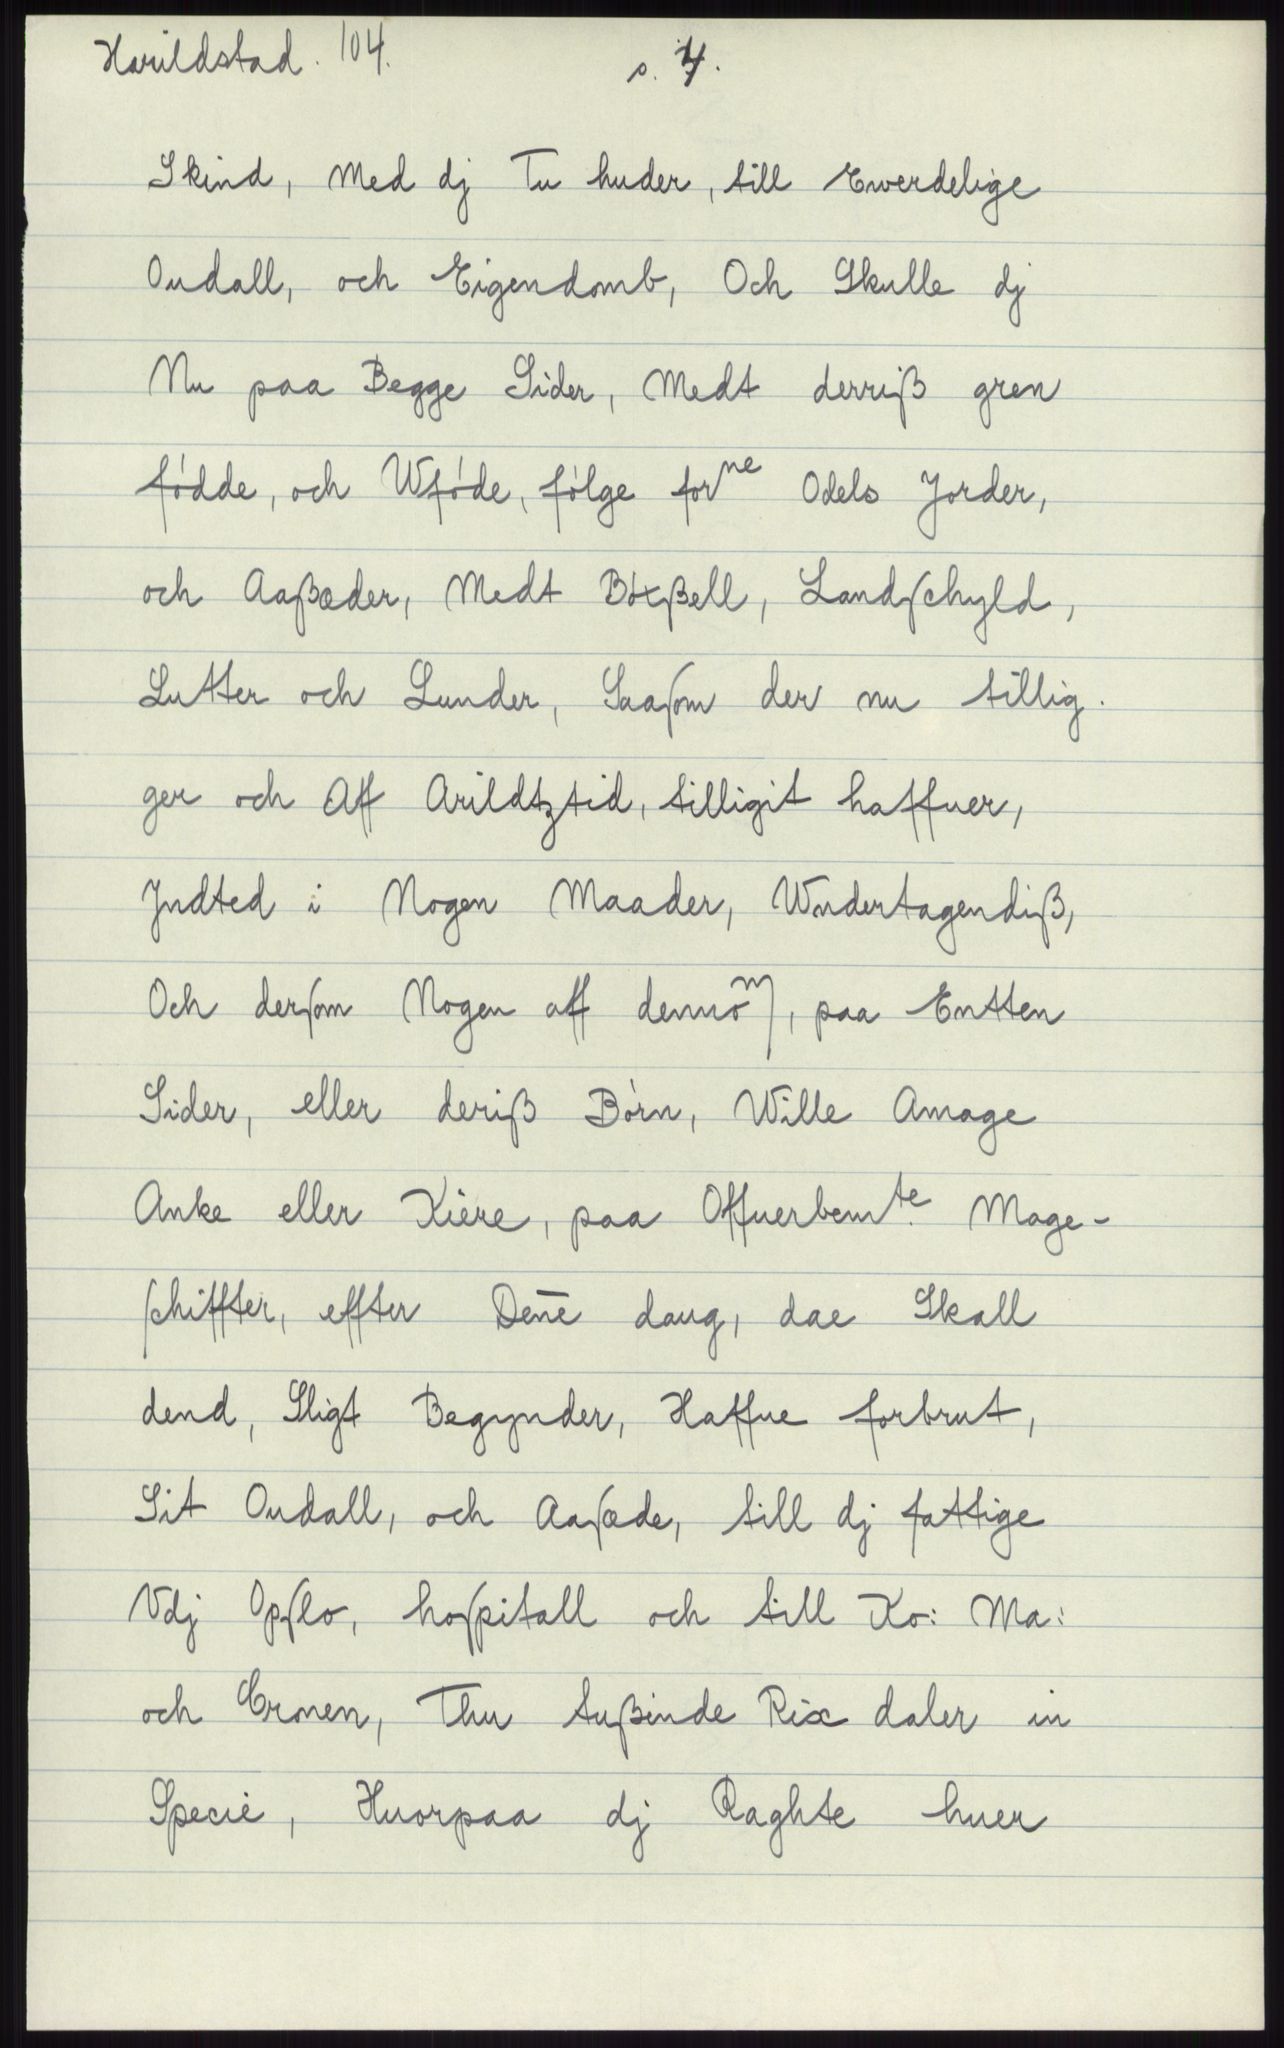 Harildstad. 104. s. 4.
Skind, Med dj Tu huder, till Ewerdelige
Oudall, och Eigendomb, Och Skulle dj
Nu paa Begge Sider, Medt derriß gren
fódde, och Wfóde, fólge forne Odels Jorder,
och Aaßæder, Medt Bóxßell, Landſchyld,
Lutter och Lunder, Saaſom der nu tillig.
ger och Aff Arildtztid, tilligit haffuer,
Jndted i Nogen Maader, Wndertagendiß,
Och derſom Nogen aff dennom, paa Entten
Sider, eller deriß Bórn, Wille Amage
Anke eller Kiere, paa Offuerbemte. Mage-
ſchiffter, effter Den̄e daug, dae Skall
dend, Sligt Begynder, Haffue forbrut,
Sit Oudall, och Aaſæde, till dj fattige
Vdj Opſlo, hoſpitall och till Ko: Ma:
och Cronen, Thu tußinde Rix daler in
Specie, Huorpaa dj Raghte huer